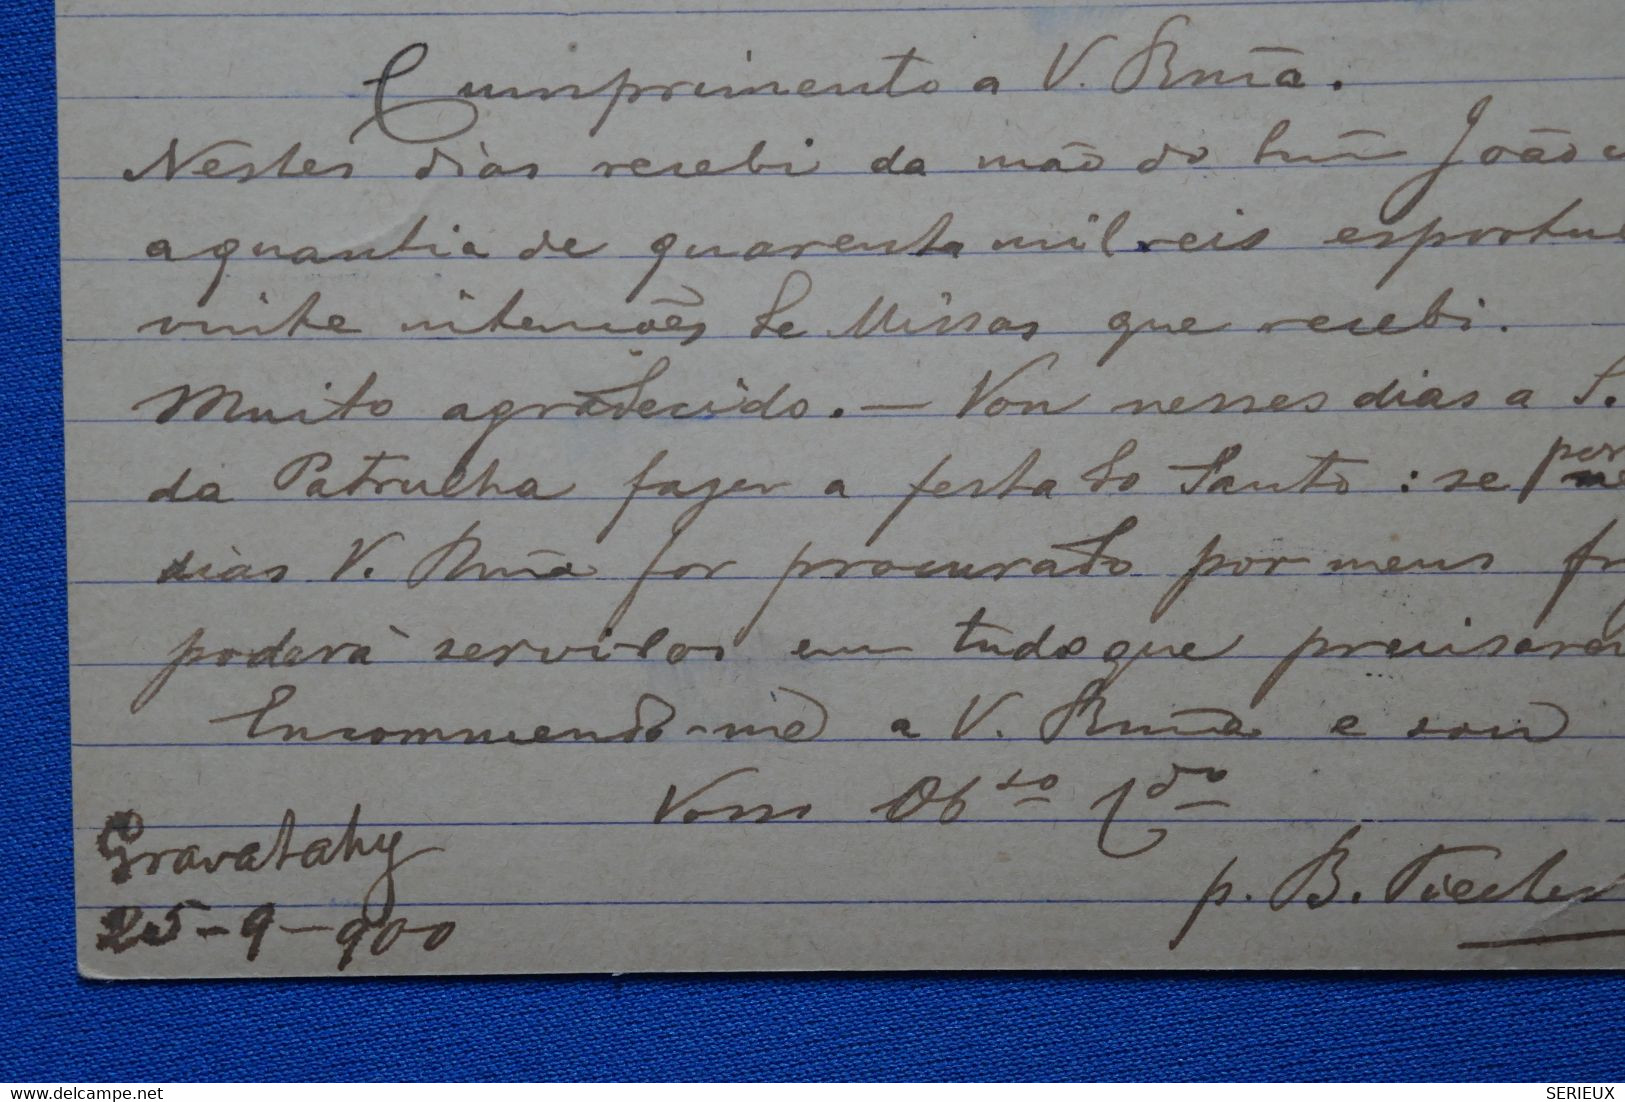 Cumprimento a V. Rmā.
Nestes dias recebi da mão do Irmão João
a quantia de quarenta mil reis esportu
vinte intencões de Missas que recebi.
Muito agradecido. — Vou nesses dias a S.
da Patrulha fazer a festa do Santo : se por
dias V. Rmā for procurado por meus fr
poderà servilos em tudo que precisarem
Encommendo-me a V. Rmā e sou
Vosso Obso Cdo
Gravatahy
p. B.
25-9-900
SERIEUX